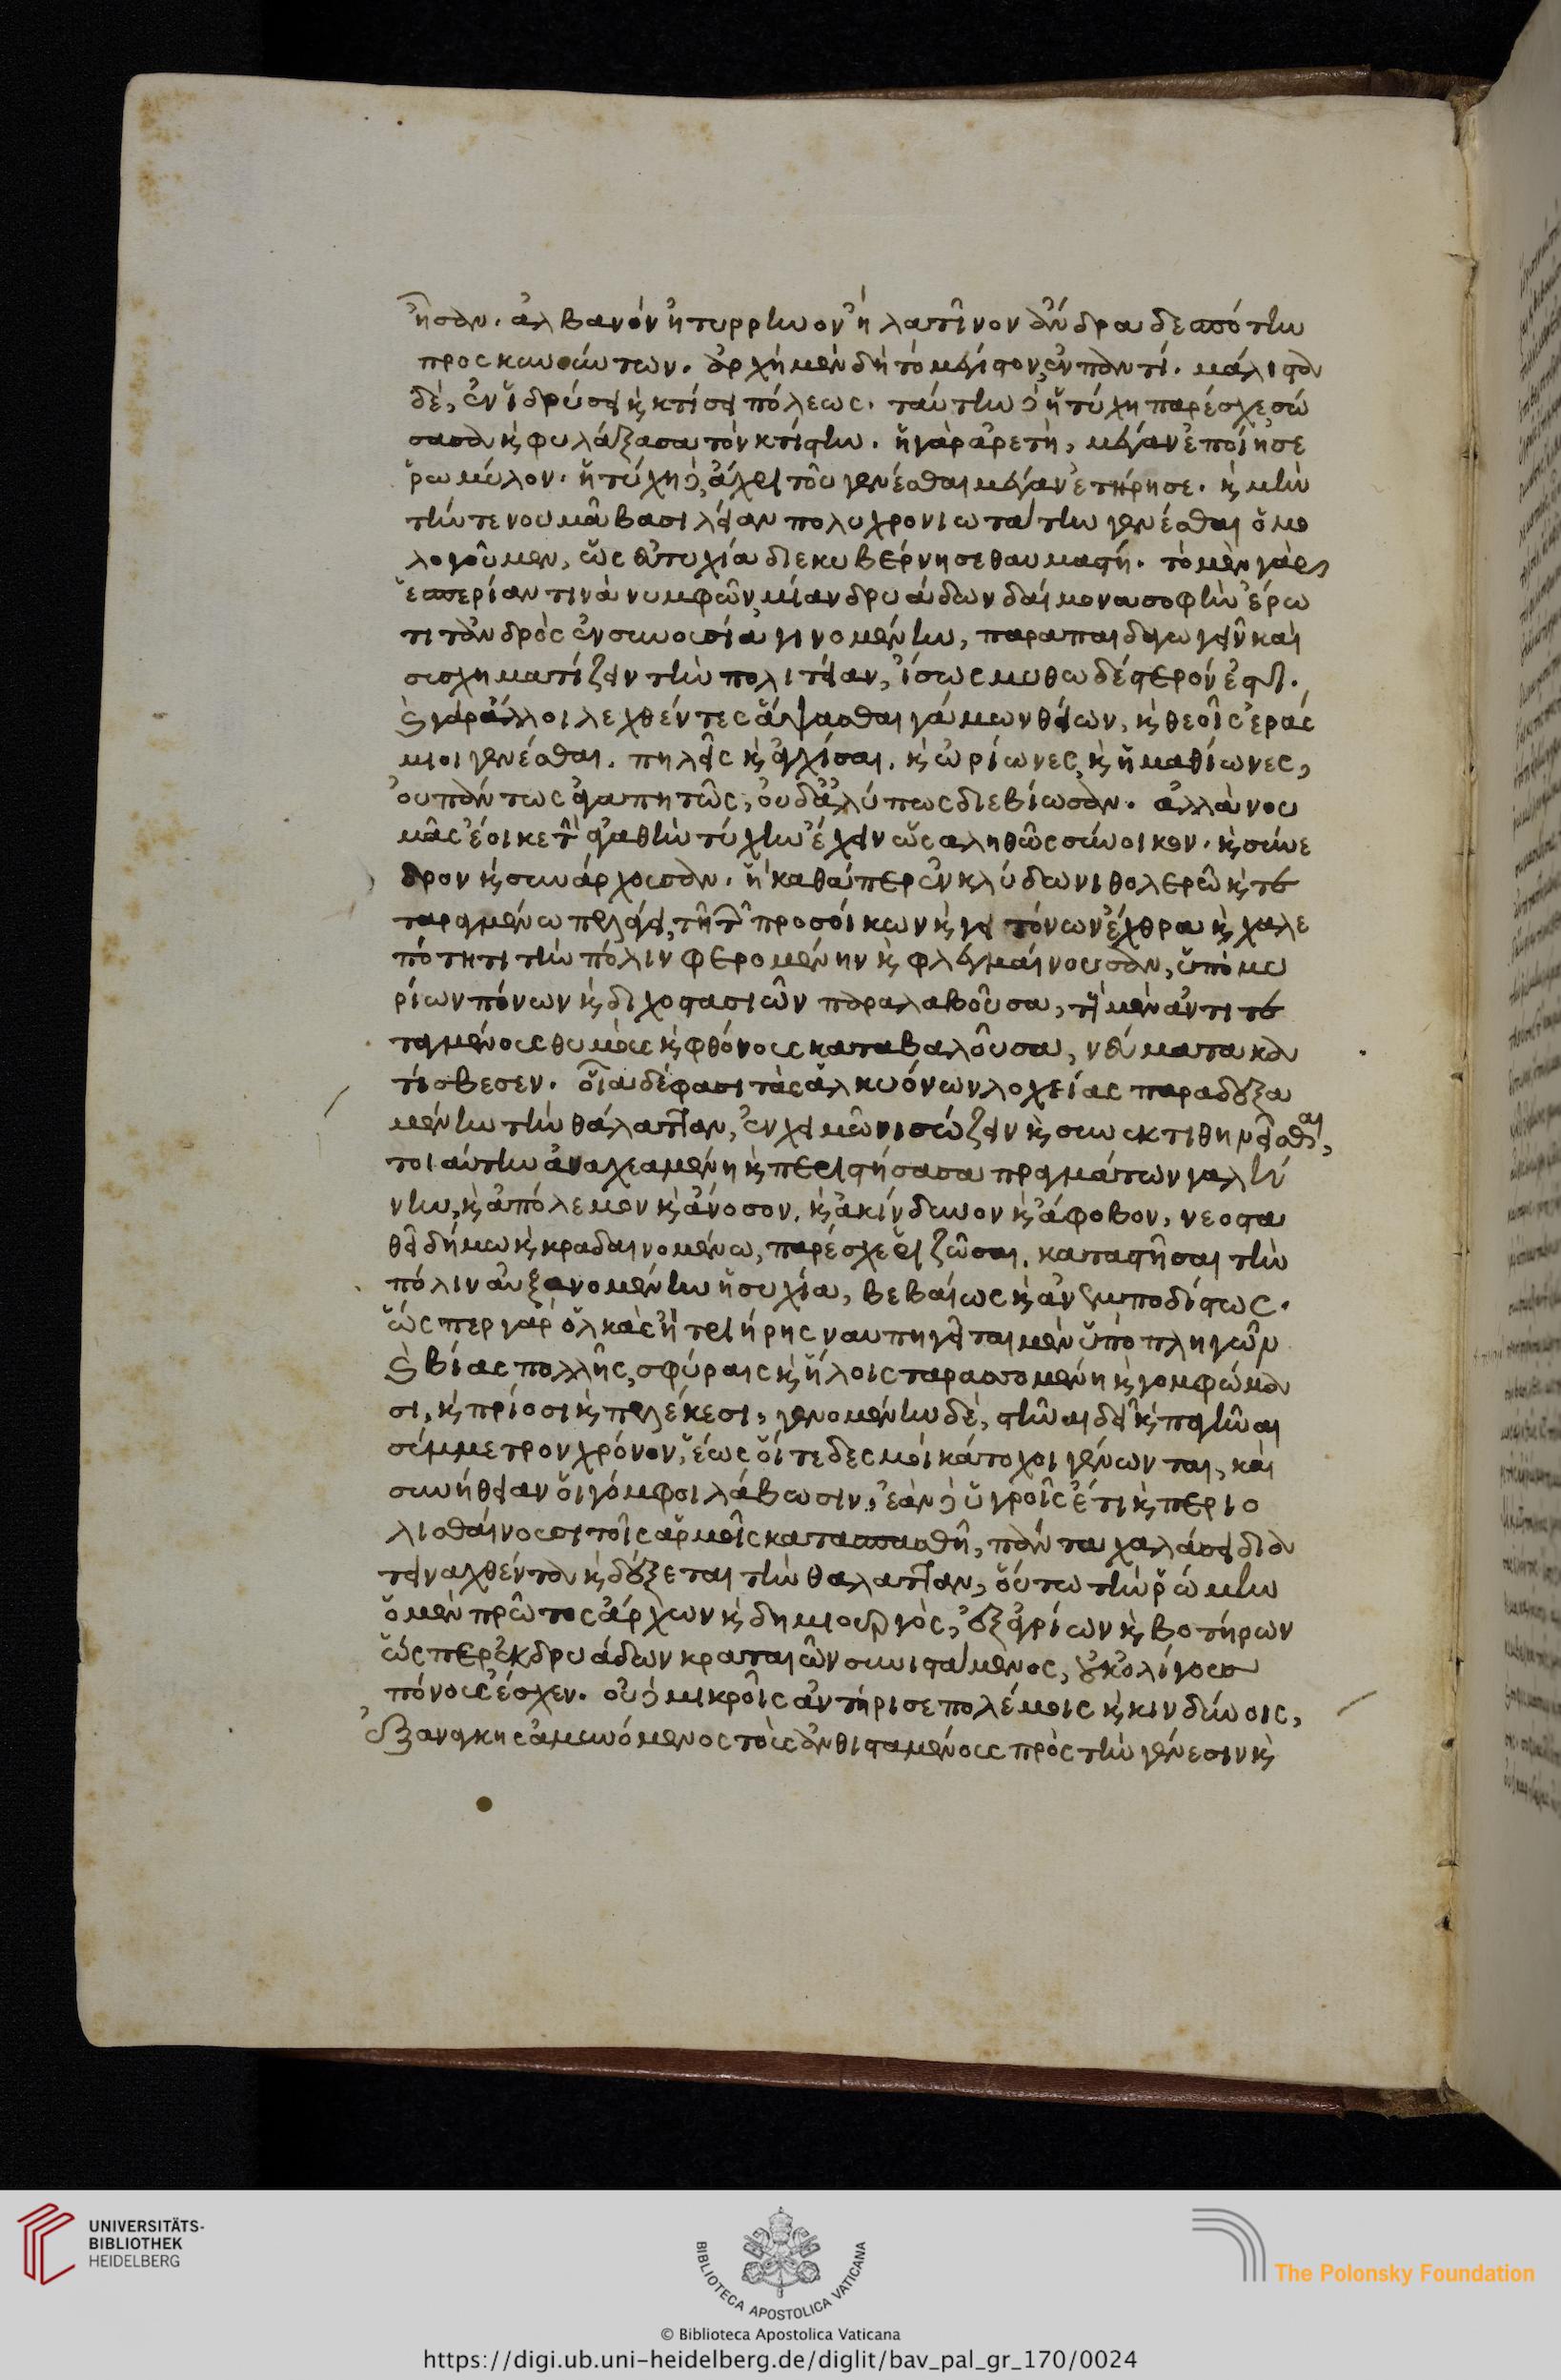 ἦσαν. ἀλβανὸν ἢ τυρρηνὸν ἢ λατῖνον ἄνδρα δεσπότην
προσκυνούντων. ἀρχὴ μὲν δὴ τὸ μέγιστον ἐν παντί. μάλιστα
δὲ, ἐν ἱδρύσει καὶ κτίσει πόλεως. ταύτην δὲ ἡ τύχη παρέσχε σώ
σασα καὶ φυλάξασα τὸν κτίστην. ἡ γὰρ ἀρετὴ, μέγαν ἐποίησε
ῥωμύλον. ἡ τύχη δὲ, ἄχρι τοῦ γενέσθαι μέγαν ἐτήρησε. καὶ μὴν
τήν τε νουμᾶ βασιλείαν πολυχρονιωτάτην γενέσθαι ὁμο
λογοῦμεν, ὡς εὐτυχία διεκυβέρνησε θαυμαστή. τὸ μὲν γὰρ
ἑσπερίαν τινὰ νυμφῶν μίαν δρυάδων δαίμονα σοφὴν ἔρω
τι τἀνδρὸς ἐν συνουσία γινομένην, παραπαιδαγωγεῖν καὶ
συσχηματίζειν τὴν πολιτείαν, ἴσως μυθωδέστερόν ἐστι.
καὶ γὰρ ἄλλοι λεχθέντες ἅψασθαι γάμων θείων, καὶ θεοῖς ἐράσ
μιοι γενέσθαι. πηλεῖς καὶ ἀγχίσαι, καὶ ὠρίωνες καὶ ἠμαθίωνες,
οὐ πάντως ἀγαπητῶς, οὐδ' ἀλύπως διεβίωσαν. ἀλλὰ νου
μᾶς ἔοικε τὴν ἀγαθὴν τύχην ἔχειν ὡς ἀληθῶς σύνοικον. καὶ σύνε
δρον καὶ συνάρχουσαν. ἣ καθάπερ ἐν κλύδωνι θολερῶ καὶ τε
ταραγμένω πελάγει, τῆ τῶν προσοίκων καὶ γειτόνων ἔχθρα καὶ χαλε
πότητι τὴν πόλιν φερομένην καὶ φλεγμαίνουσαν, ὑπὸ μυ
ρίων πόνων καὶ διχοστασιῶν παραλαβοῦσα, τοὺς μὲν ἀντιτε
ταγμένους θυμοὺς καὶ φθόνους καταβαλοῦσα, νεύματα κα
τέσβεσεν. οἷα δέ φασι τὰς ἁλκυόνων λοχείας παραδεξα
μένην τὴν θάλατταν, ἐν χειμῶνι σώζειν καὶ συνεκτιθηνεῖσθαι,
τοιαύτην ἀναχεαμένη καὶ περιστήσασα πραγμάτων γαλή
νην, καὶ ἀπόλεμον καὶ ἄνοσον, καὶ ἀκίνδυνον καὶ ἄφοβον, νεοστα
θεῖ δήμω καὶ κραδαινομένω, παρέσχε ῥιζῶσαι, καταστῆσαι τὴν
πόλιν αὐξανομένην ἡσυχία, βεβαίως καὶ ἀνεμποδίστως.
ὥσπερ γὰρ ὁλκὰς ἢ τριήρης ναυπηγεῖται μὲν ὑπὸ πληγῶν
καὶ βίας πολλῆς, σφύραις καὶ ἥλοις ταρασσομένη καὶ γομφώμα
σι, καὶ πρίοσι καὶ πελέκεσι, γενομένην δὲ, στῆναι δεῖ καὶ παγῆναι
σύμμετρον χρόνον, ἕως οἵ τε δεσμοὶ κάτοχοι γένωνται, καὶ
συνήθειαν οἱ γόμφοι λάβωσιν, ἐὰν δὲ ὑγροῖς ἔτι καὶ περιο
λισθαίνουσι τοῖς ἁρμοῖς κατασπασθῆ, πάντα χαλάσει δια
τιναχθέντα καὶ δέξεται τὴν θάλατταν, οὕτω τὴν ῥώμην
ὁ μὲν πρῶτος ἄρχων καὶ δημιουργὸς, ἐξ ἀγρίων καὶ βοτήρων
ὥσπερ ἐκ δρυάδων κραταιῶν συνιστάμενος, οὐκ ὀλίγους
πόνους ἔσχεν. οὐδὲ μικροῖς ἀντήρισε πολέμοις καὶ κινδύνοις,
ἐξ ἀνάγκης ἀμυνόμενος τοὺς ἀνθισταμένους πρὸς τὴν γένεσιν καὶ
UNIVERSITÄTS-
BIBLIOTHEK
HEIDELBERG
BIBLIOTECA APOSTOLICA VATICANA
The Polonsky Foundation
© Biblioteca Apostolica Vaticana
https://digi.ub.uni-heidelberg.de/diglit/bav_pal_gr_170/0024